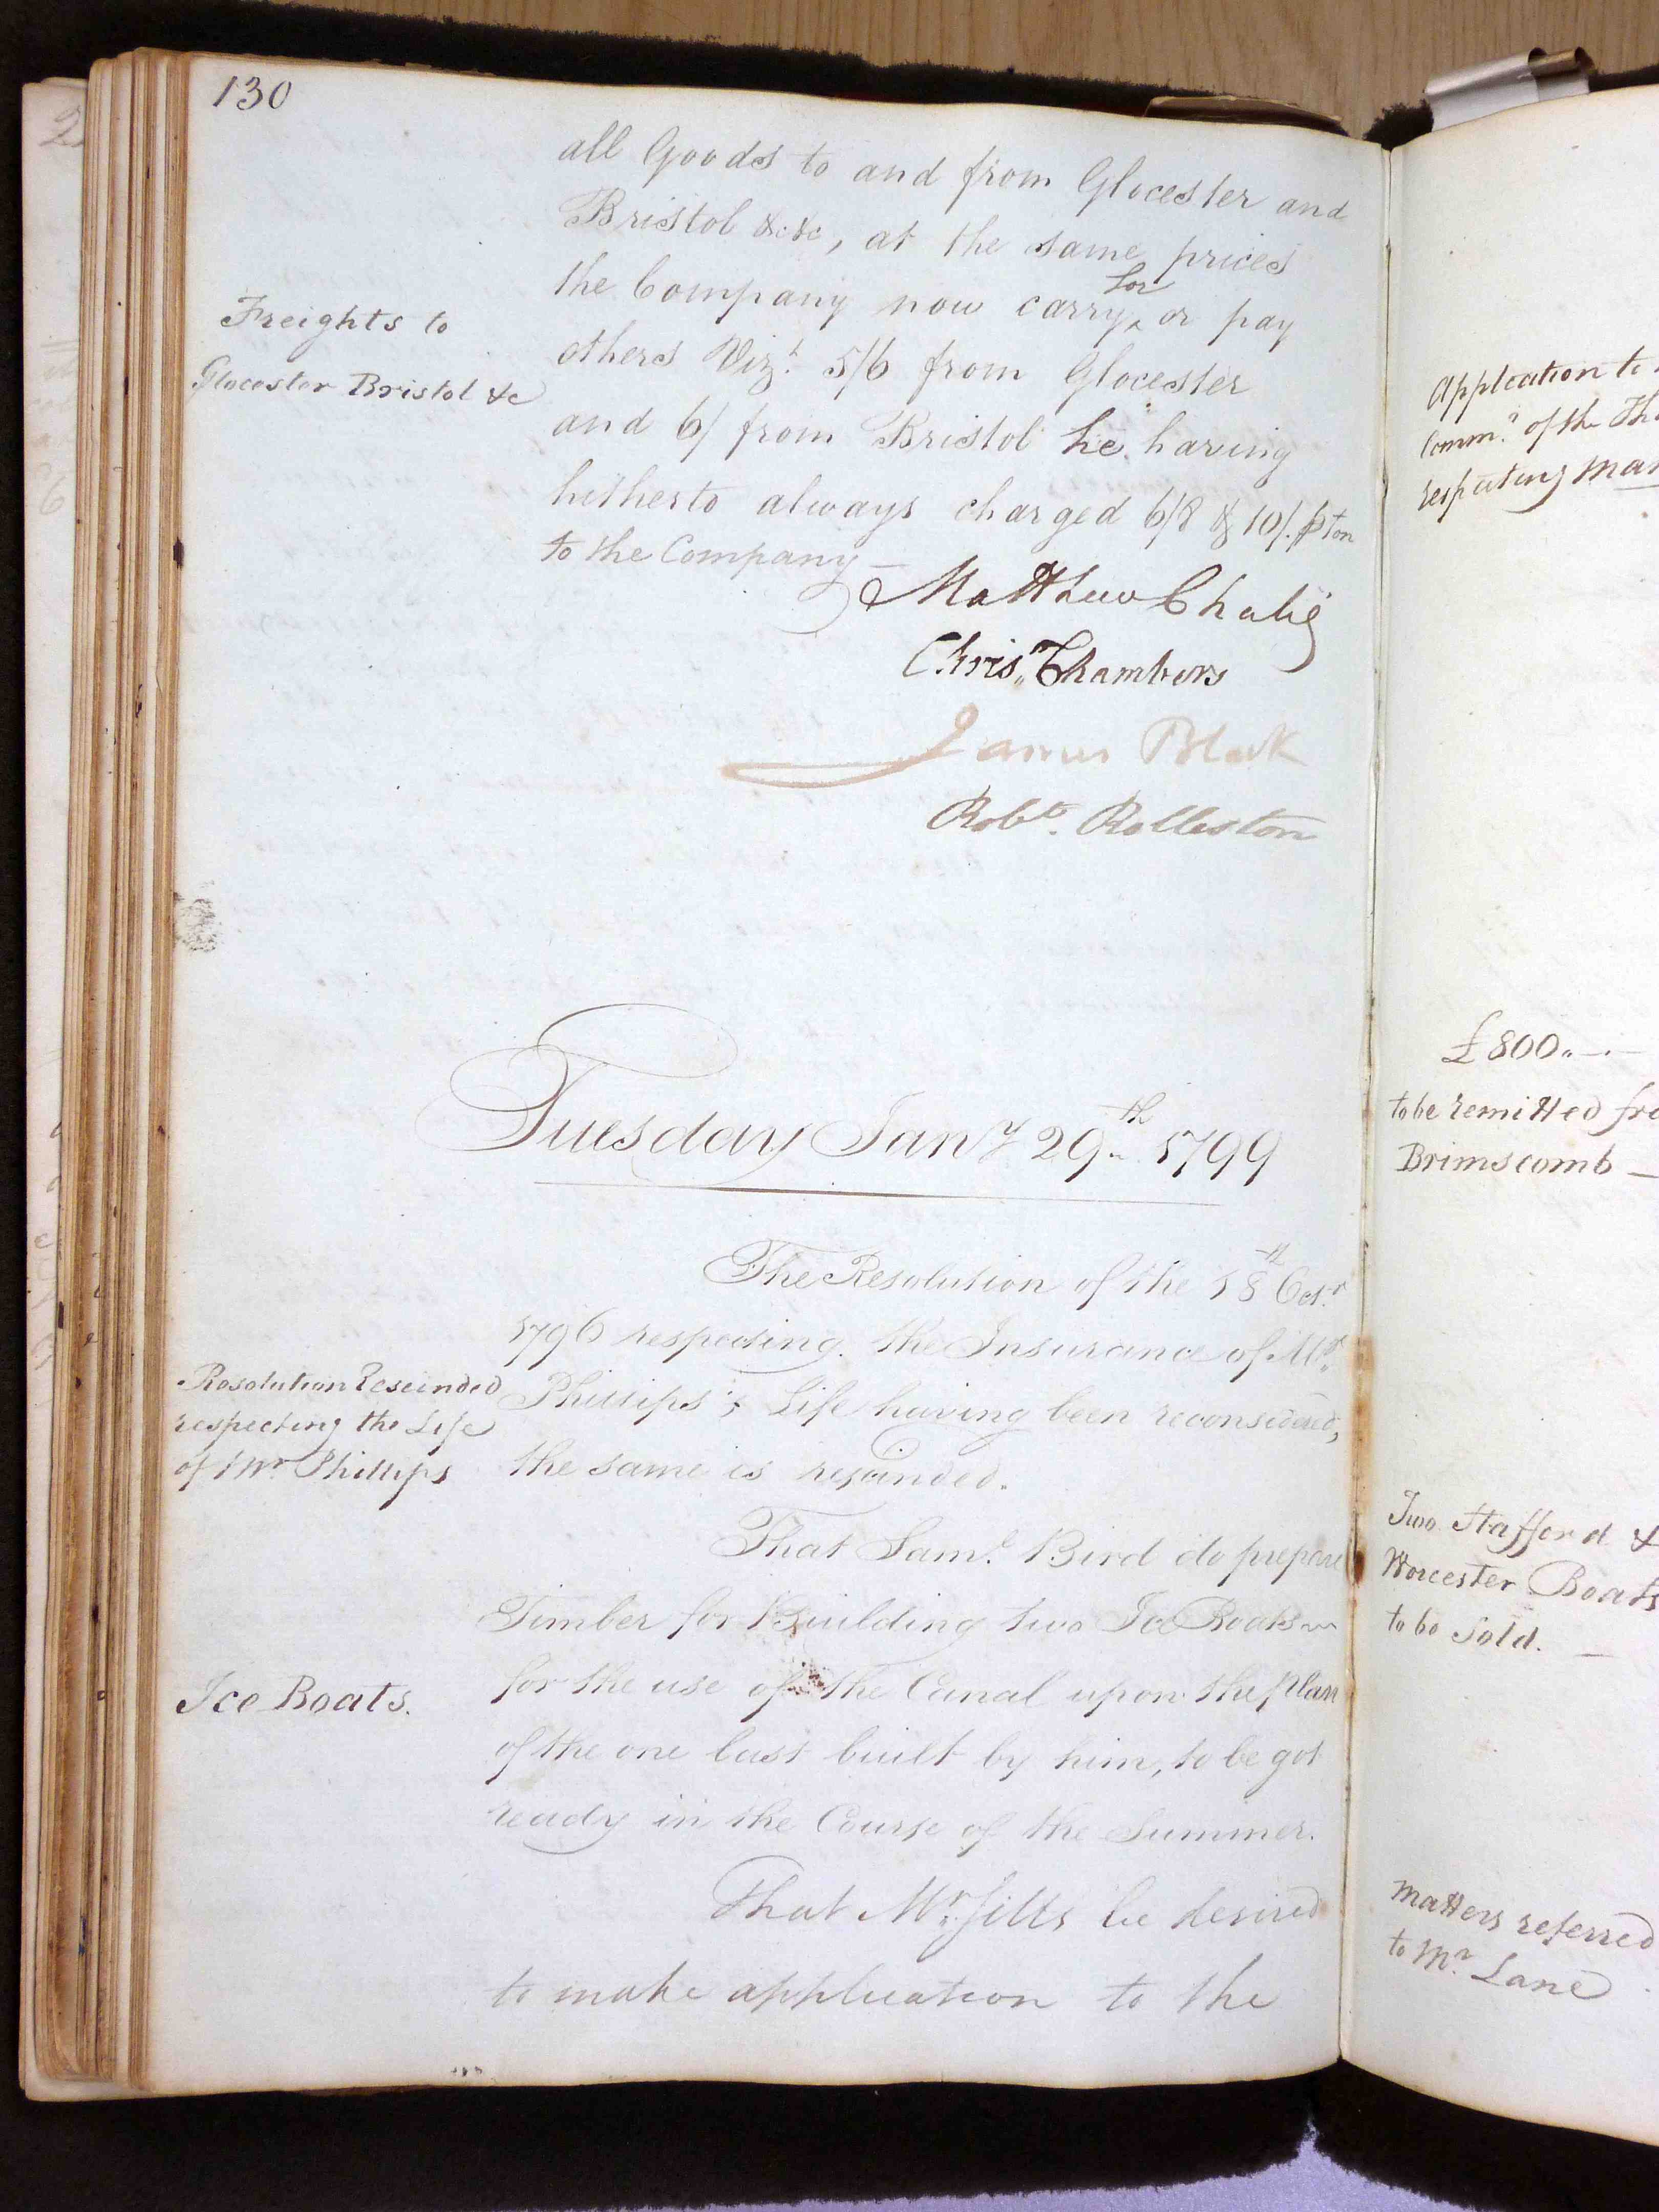 130
all Goods to and from Glocester and
Bristol &c &c, at the same prices
the Company now carry ^for or pay
Freights to
Glocester Bristol &c
others Vizt. 5/6 from Glocester
and 6/ from Bristol he having
hitherto always charged 6/8 & 10/. p ton
to the Company —
Matthew Chalié
Chris. Chambers
James Black
Robt. Rolleston
Tuesday Jany 29th 1799
The Resolution of the 18th Octr.
1796 respecting the Insurance of Mr.
Resolution Rescinded
respecting the Life
of Mr Phillips
Phillips's Life having been reconsidered,
the same is rescinded.
That Saml. Bird do prepare
Timber for Building two Ice Boats
Ice Boats.
for the use of the Canal upon the plan
of the one last built by him, to be got
ready in the Course of the Summer.
That Mr. Sills be desired
to make application to the
Application to
Comm.rs of the
respecting
£800 „ — . —
to be remitted
Brimscomb —
Two Stafford &
Worcester Boats
to be Sold. —
Matters referred
to Mr. Lane